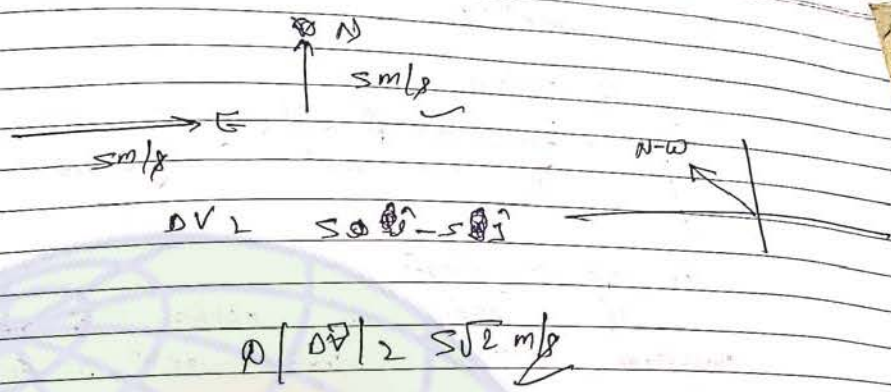 N
5 m/s
E
5 m/s
N-W
ΔV = 5 î - 5 ĵ
|ΔV⃗| = 5√2 m/s